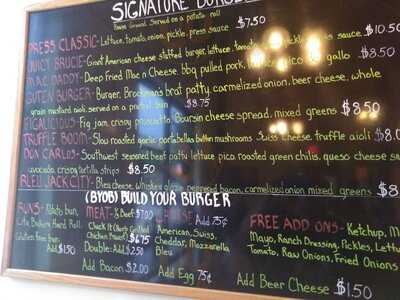 SIGNATURE
House Ground. Served on a potato roll
PRESS CLASSIC - Lettuce, tomato, onion, pickle, press sauce $7.50
JUICY BRUCIE - Giant American cheese stuffed burger, lettuce, sauce $10.50
MAC DADDY - Deep Fried Mac n Cheese, bbq pulled pork, pico de gallo $8.50
GUTEN BURGER - Burger, Brockman's brat patty, carmelized onion, beer cheese, whole
grain mustard aioli, served on a pretzel bun $8.75
FIGALICIOUS - Fig jam, crispy proscuitto, Boursin cheese spread, mixed greens $8.50
TRUFFLE BOOM - Slow roasted garlic, portabella & button mushrooms, Swiss cheese, truffle aioli $8.
DON CARLOS - Southwest seasoned beef patty, lettuce, pico, roasted green chilis, queso cheese
avocado, crispy tortilla strips $8.50
BLEU JACK CITY - Bleu cheese, whiskey glaze, peppered bacon, carmelized onion, mixed greens $8
(BYOB) BUILD YOUR BURGER
BUNS - Potato bun,
Gluten free bun
Add $1.50
MEAT - Beef $7.00
Chicken Breast $6.75
Double: Add $2.50
CHEESE Add 75¢
American, Swiss,
Cheddar, Mozzarella
Bleu
FREE ADD ONS - Ketchup,
Mayo, Ranch Dressing, Pickles,
Tomato, Raw Onions, Fried Onions
Add Bacon $2.00 Add Egg 75¢ Add Beer Cheese $1.50